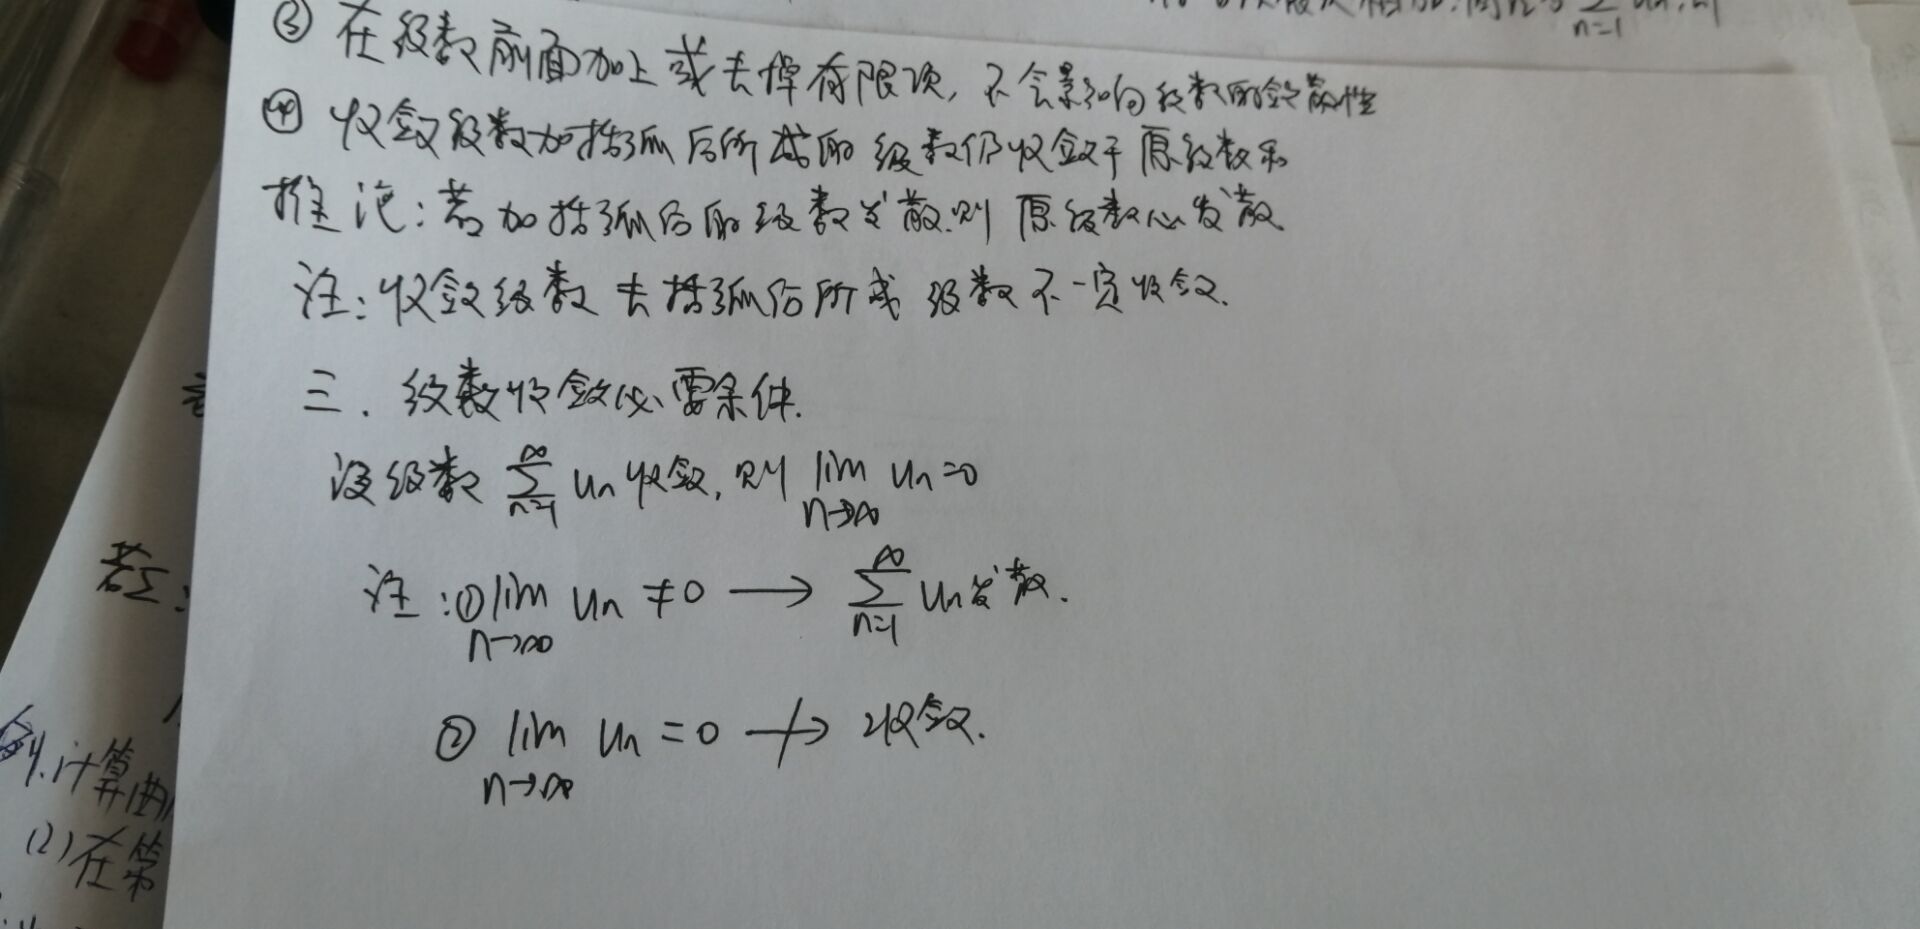 ③ 在级数前面加上或去掉有限项,不会影响级数的敛散性
④ 收敛级数加括弧后所成的级数仍收敛于原级数和
推论:若加括弧后的级数发散.则原级数必发散
注:收敛级数去括弧后所成级数不一定收敛.
三.级数收敛必要条件.
设级数 ∑_{n=1}^{∞} un 收敛,则 lim_{n→∞} un=0
注:① lim_{n→∞} un ≠0 ⟶ ∑_{n=1}^{∞} un发散.
② lim_{n→∞} un = 0 ↛ 收敛.
若∑:
计算曲
(2)在第